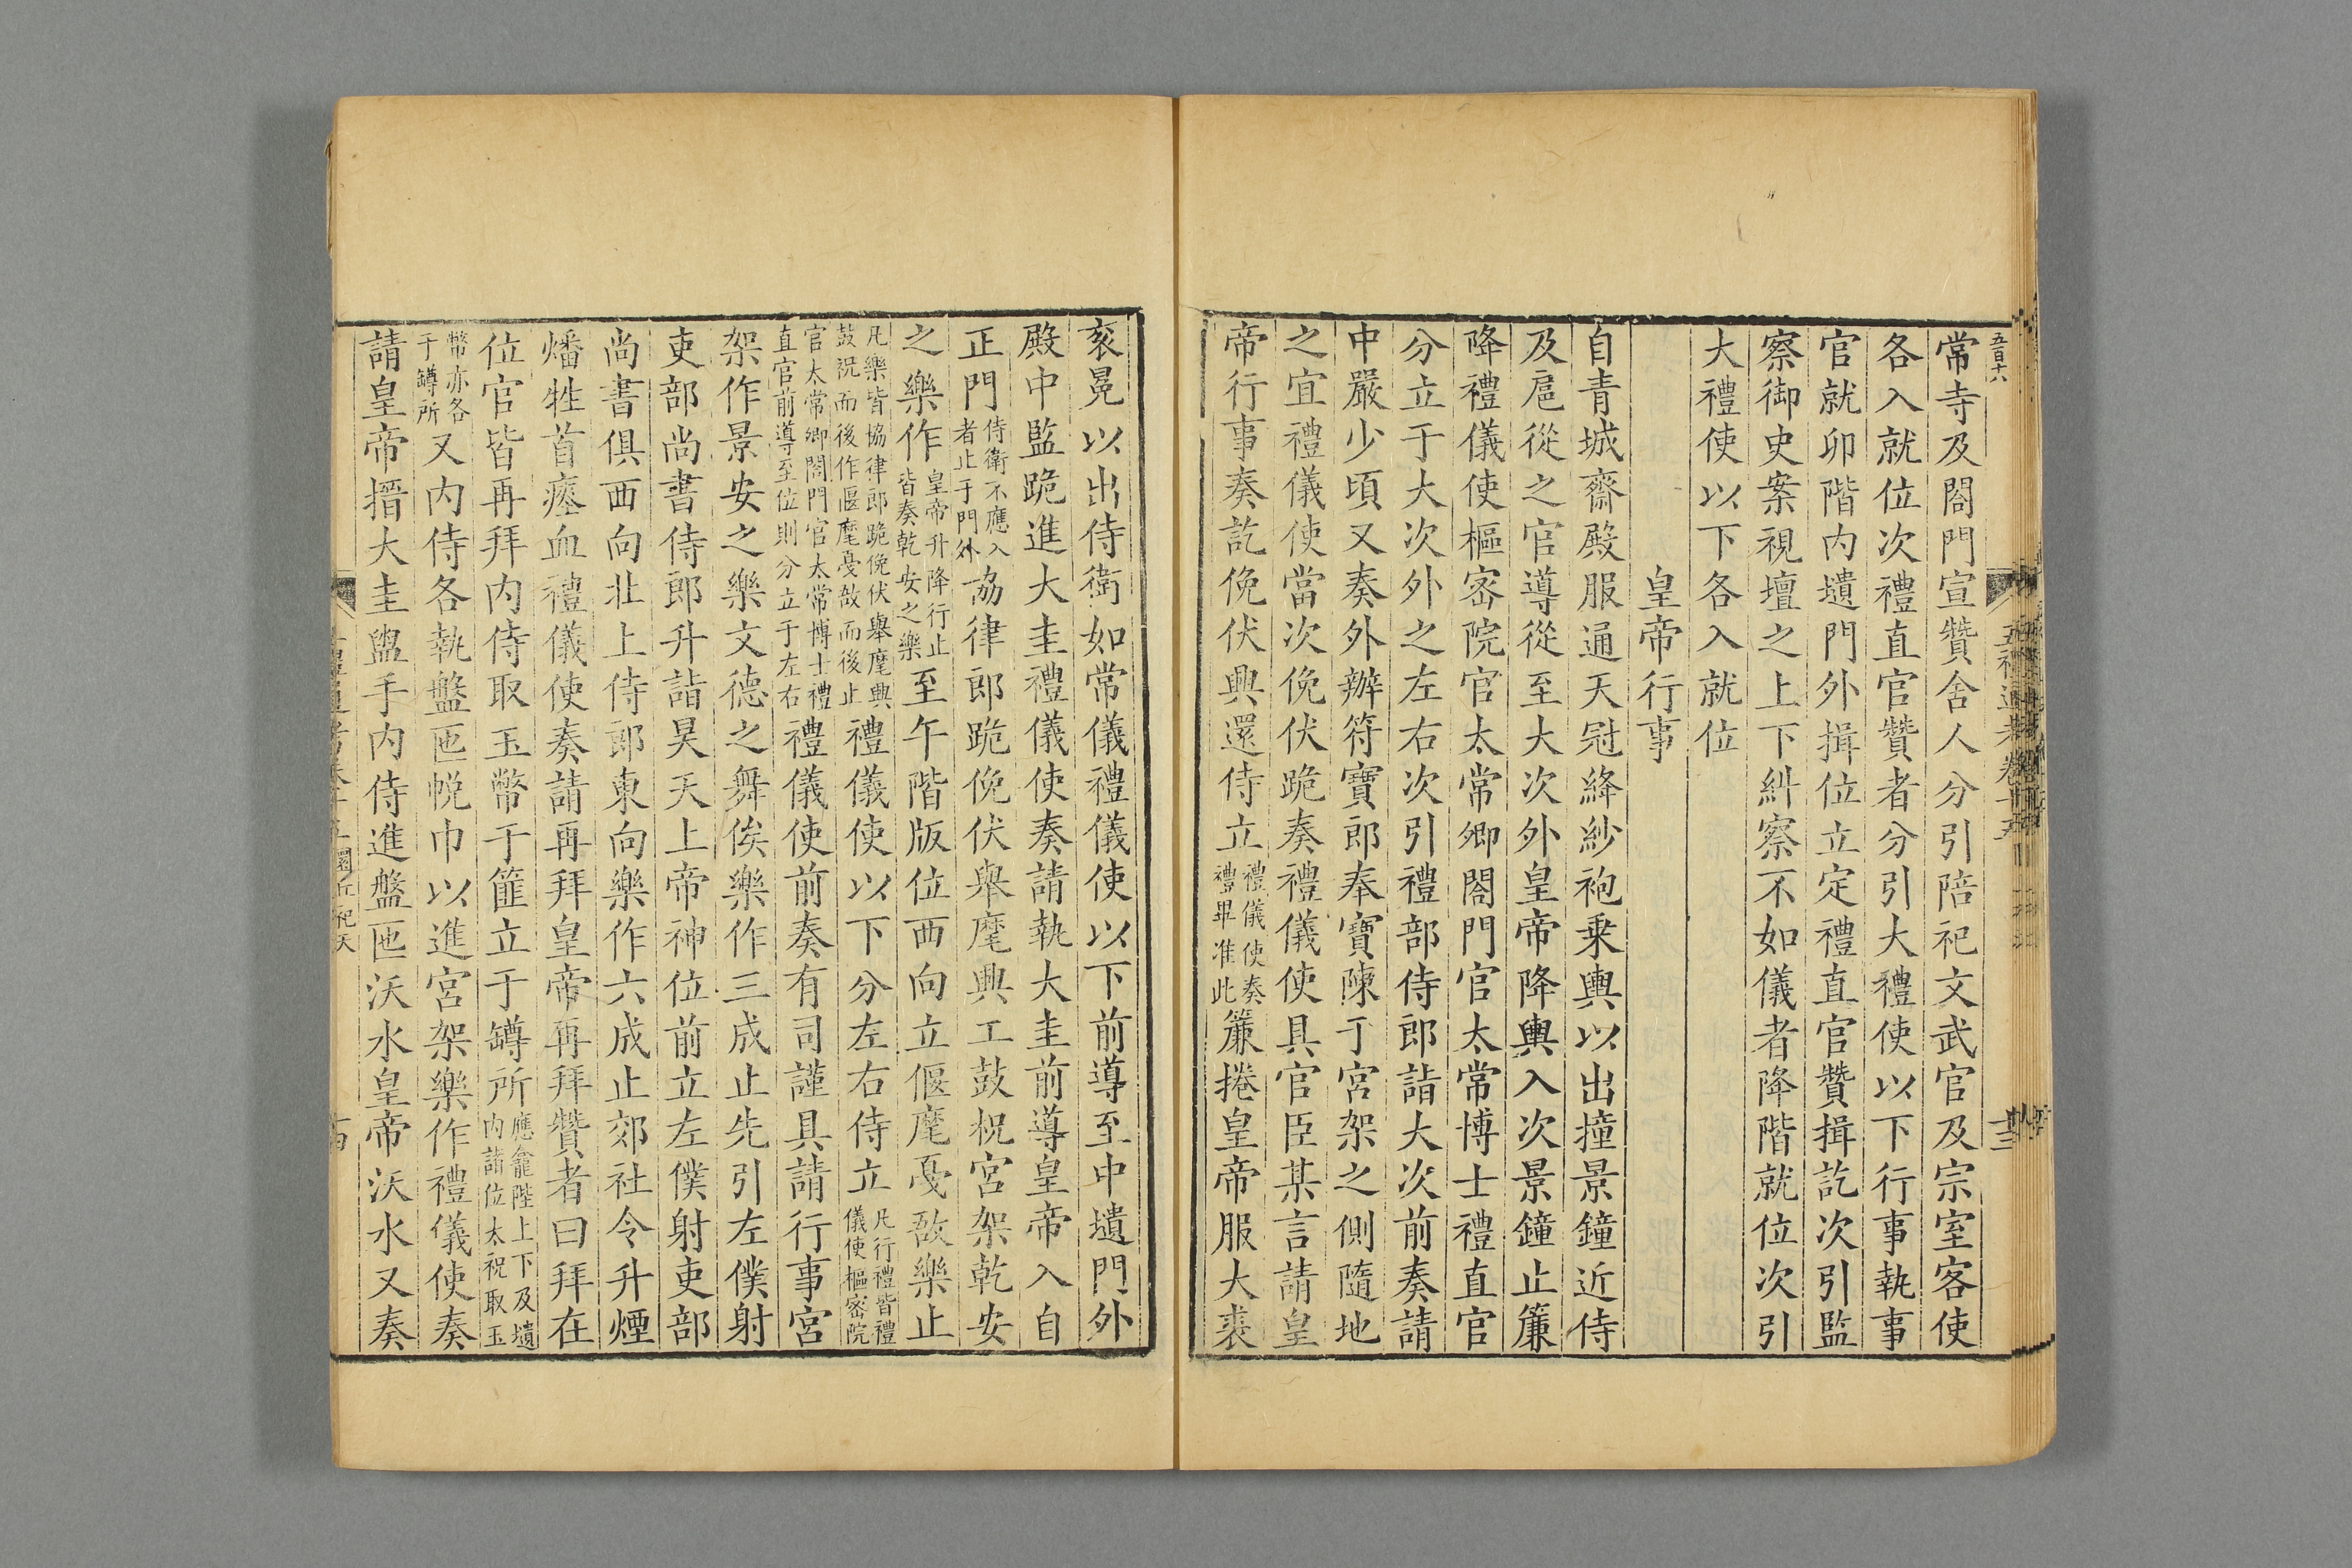 常寺及閤門宣贊舍人分引陪祀文武官及宗室客使
各入就位次禮直官贊者分引大禮使以下行事執事
官就卯階内壝門外揖位立定禮直官贊揖訖次引監
察御史案視壇之上下糾察不如儀者降階就位次引
大禮使以下各入就位
皇帝行事
自青城齋殿服通天冠絳紗袍乗輿以出撞景鐘近侍
及扈從之官導從至大次外皇帝降輿入次景鐘止簾
降禮儀使樞宻院官太常卿閤門官太常博士禮直官
分立于大次外之左右次引禮部侍郎詣大次前奏請
中嚴少頃又奏外辦符寶郎奉寶陳于宮架之側隨地
之宜禮儀使當次俛伏跪奏禮儀使具官臣某言請皇
帝行事奏訖俛伏興還侍立禮儀使奏禮畢准此簾捲皇帝服大裘
衮冕以出侍衛如常儀禮儀使以下前導至中壝門外
殿中監跪進大圭禮儀使奏請執大圭前導皇帝入自
正門侍衛不應入者止于門外協律郎跪俛伏舉麾興工鼓柷宮架乾安
之樂作皇帝升降行止皆奏乾安之樂至午階版位西向立偃麾戞敔樂止
凡樂皆協律郎跪俛伏舉麾興鼓柷而後作偃麾戞敔而後止禮儀使以下分左右侍立凡行禮皆禮儀使樞宻院
官太常卿閤門官太常博士禮直官前導至位則分立于左右禮儀使前奏有司謹具請行事宮
架作景安之樂文德之舞俟樂作三成止先引左僕射
吏部尚書侍郎升詣昊天上帝神位前立左僕射吏部
尚書俱西向北上侍郎東向樂作六成止郊社令升煙
燔牲首瘞血禮儀使奏請再拜皇帝再拜贊者曰拜在
位官皆再拜内侍取玉幣于篚立于罇所應龕陛上下及壝内諸位太祝取玉
幣亦各于罇所又内侍各執盤匜帨巾以進宮架樂作禮儀使奏
請皇帝搢大圭盥手内侍進盤匜沃水皇帝沃水又奏